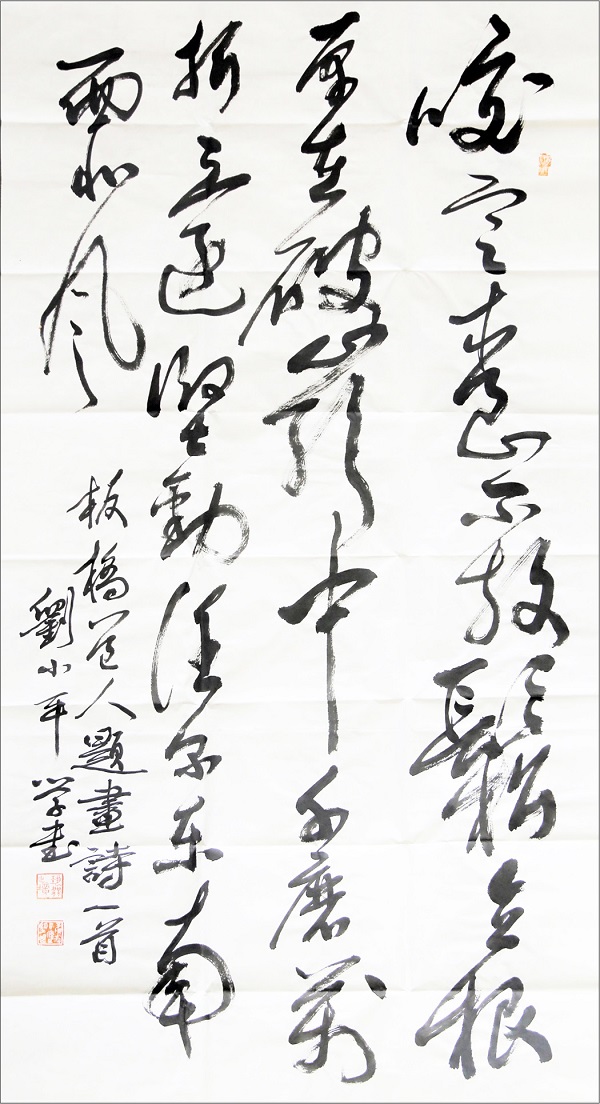 咬定青山不放鬆立根
原在破巖中千磨萬
折還堅勁任尔东南
西北风
板橋道人題畫詩一首
劉小平學書